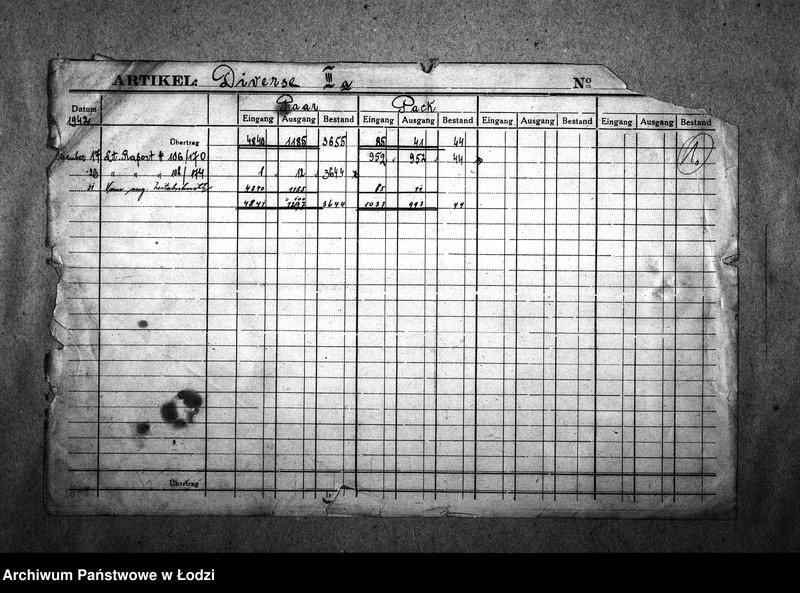 ARTIKEL: Diverse III a Nº
Datum Paar Pack
1942 Eingang Ausgang Bestand Eingang Ausgang Bestand Eingang Ausgang Bestand Eingang Ausgang Bestand
Übertrag 4840 1185 3655 85 41 44
17 Lt. Raport # 166/170 952 952 44
" " " 174 1 12 3644
31 4840 1185 85 41
4841 1197 3644 1037 993 44
Übertrag
Archiwum Państwowe w Łodzi